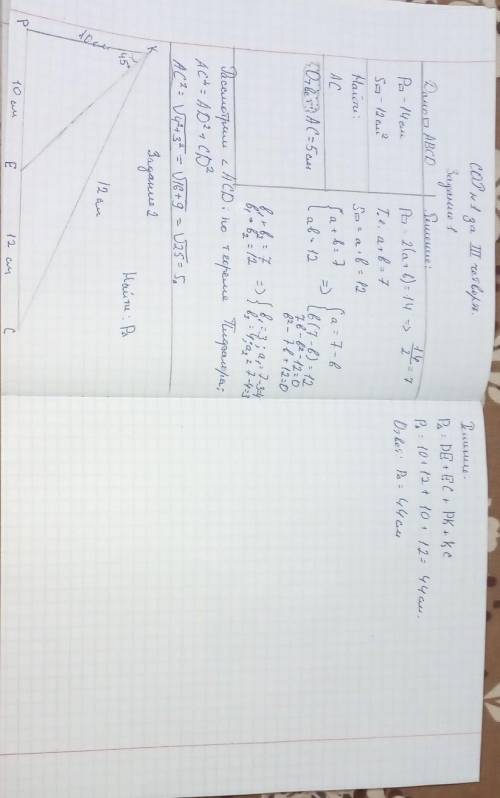 СОР №1 за III четверть.
Задание 1
Дано: ▭ ABCD
P▭ = 14 см
S▭ = 12 см²
Найти:
AC
Ответ: AC = 5 см
Решение:
P▭ = 2(a+b) = 14 => 14/2 = 7
Т.е. a+b = 7
S▭ = a·b = 12
{ a+b = 7 => { a = 7-b
{ ab = 12 { b(7-b) = 12
7b - b² - 12 = 0
b² - 7b + 12 = 0
b₁ + b₂ = 7 => { b₁ = 3; a₁ = 7-3=4
b₁ * b₂ = 12 { b₂ = 4; a₂ = 7-4=3
Рассмотрим ∠ ACD: по теореме Пифагора:
AC² = AD² + CD²
AC² = √4²+3² = √16+9 = √25 = 5.
Задание 2
Найти: P▵
P
K
10см
45°
12 см
10 см
E
12 см
C
Решение:
P▵ = DE + EC + PK + KC
P▵ = 10 + 12 + 10 + 12 = 44 см.
Ответ: P▵ = 44 см